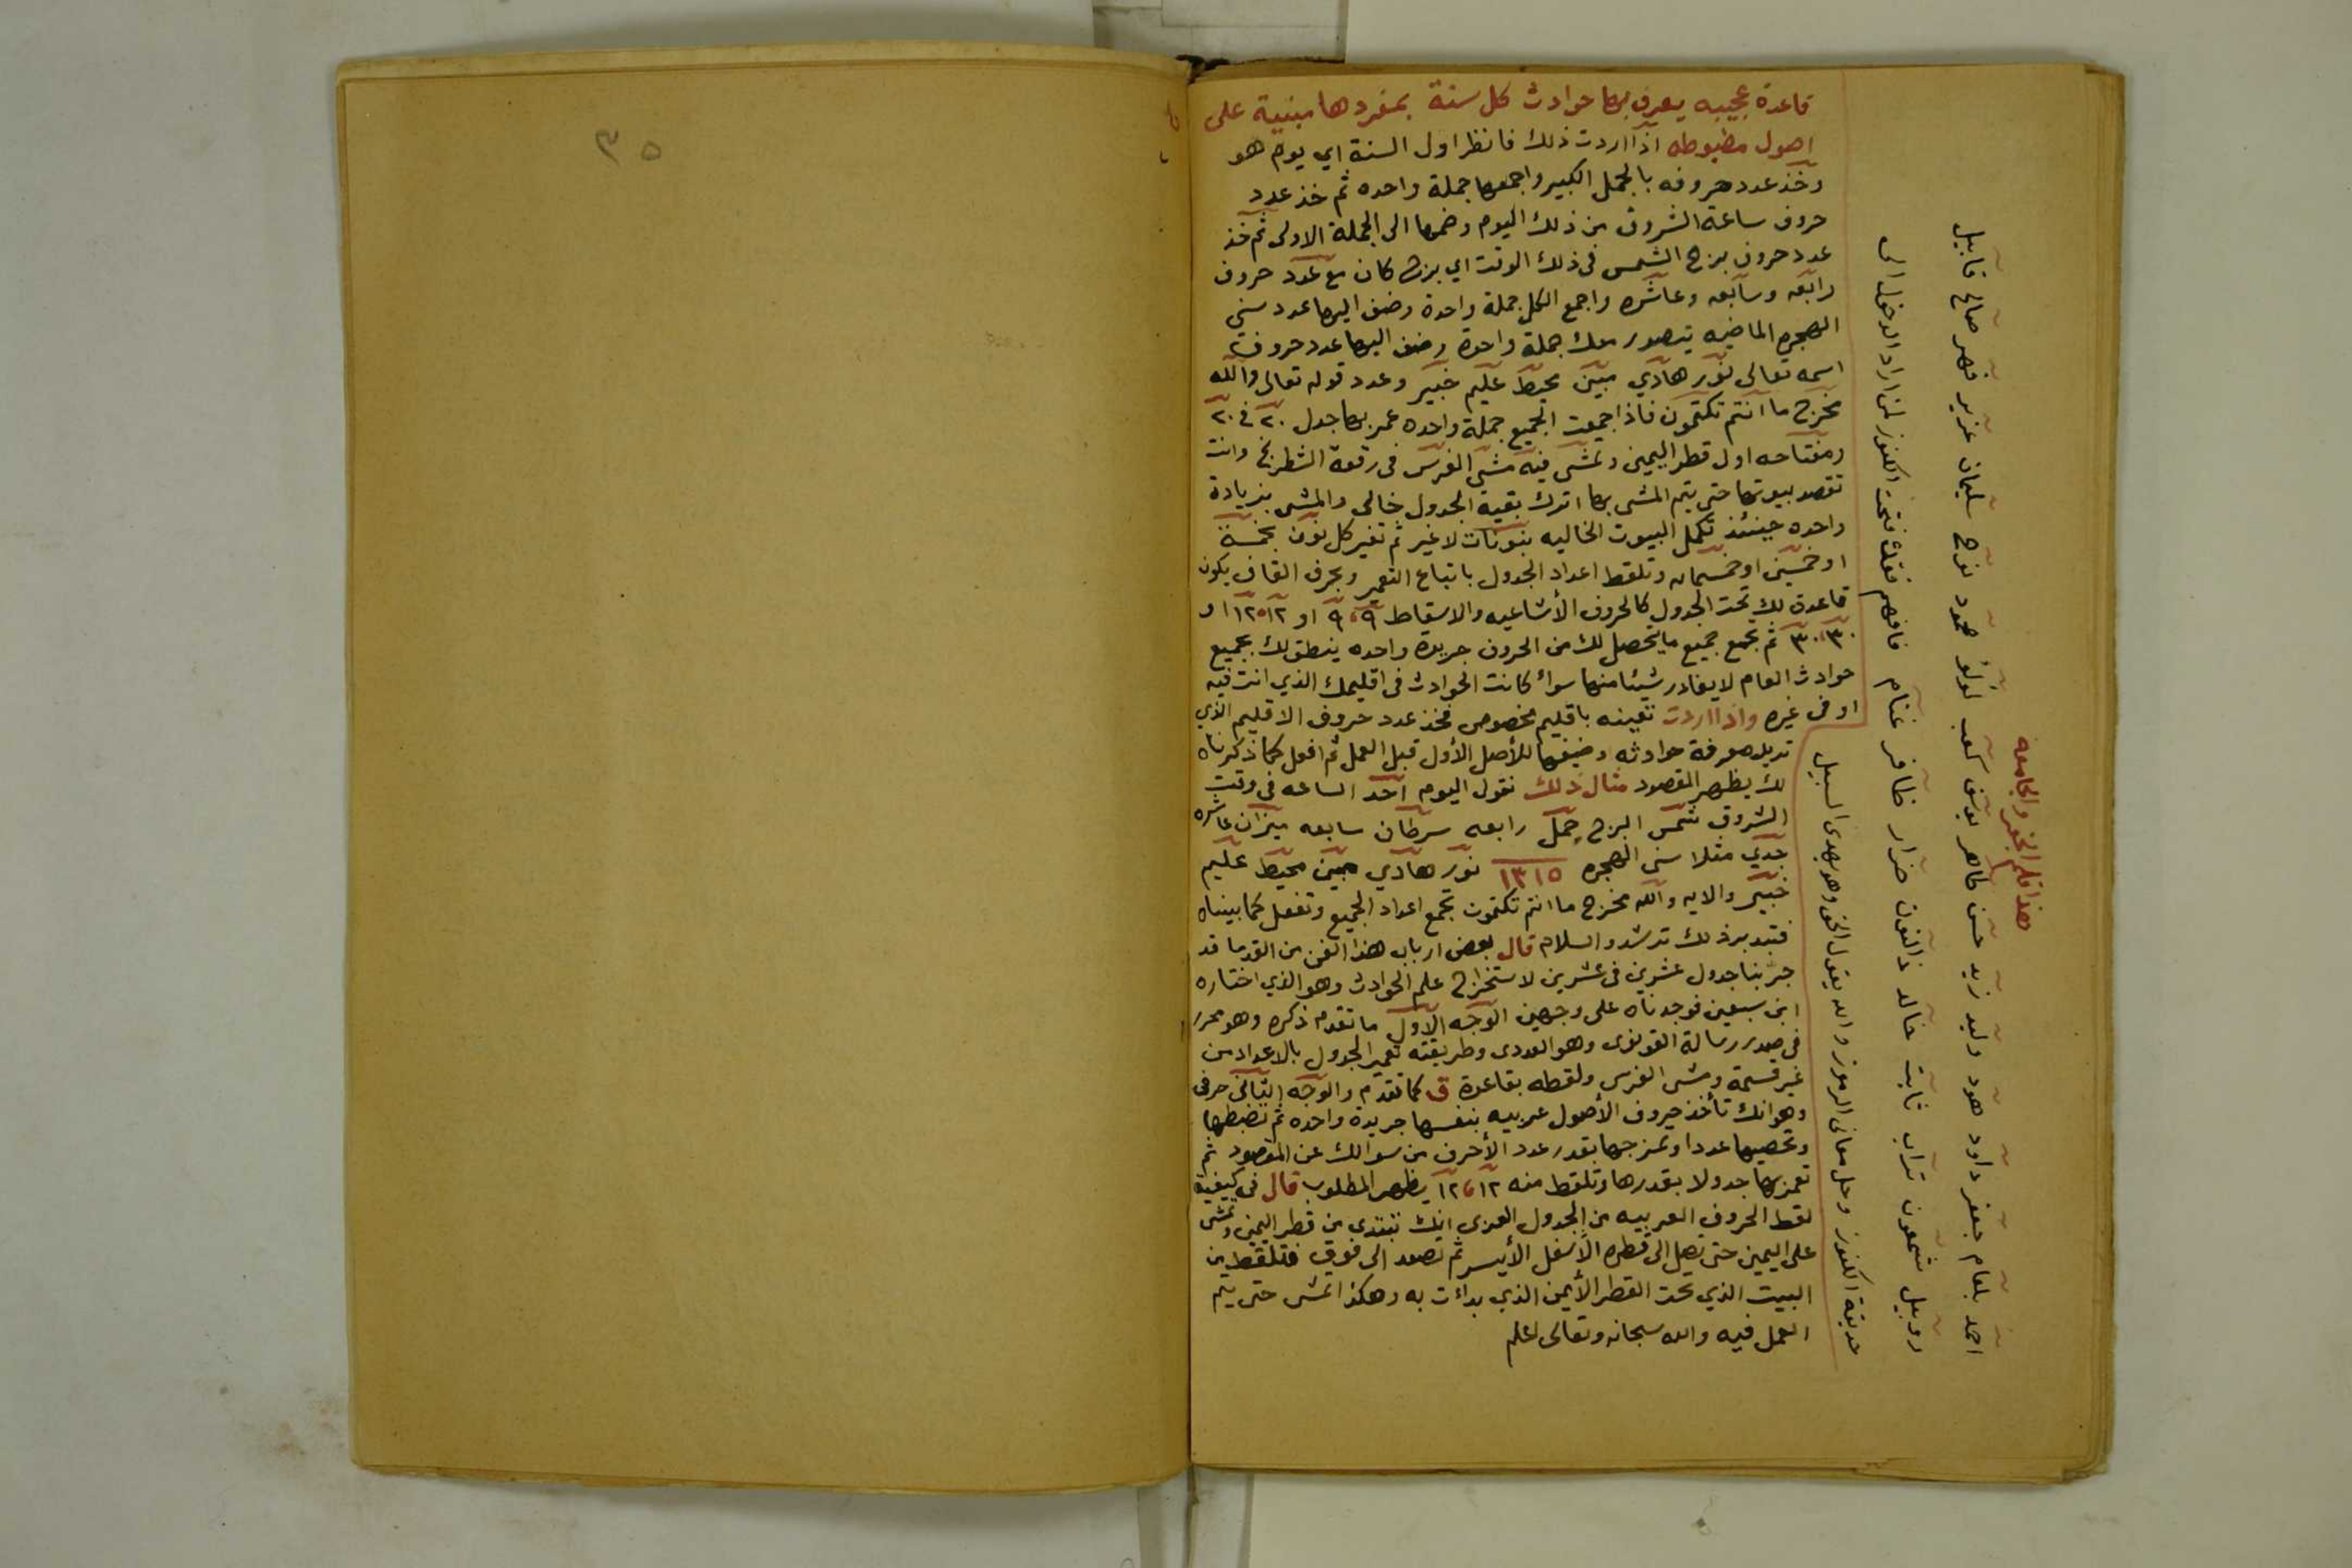 قاعدة عجيبه يعرف بها حوادث كل سنة بمفردها مبنية على
اصول مظبوطه اذا اردت ذلك فانظر اول السنة اي يوم هو
وخذ عدد حروفه بالجمل الكبير واجمعها جملة واحده ثم خذ عدد
حروف ساعة الشروق من ذلك اليوم وضمها الى الجملة الاولى ثم خذ
عدد حروف برج الشمس في ذلك الوقت اي برج كان مع عدد حروف
رابعه وسابعه وعاشره واجمع الكل جملة واحدة وضف اليها عدد سني
الهجره الماضيه يتصور معك جملة واحدة وضف اليها عدد حروف
اسمه تعالى نور هادي مبين محيط عليم خبير وعدد قوله تعالى والله
مخرج ما انتم تكتمون فاذا جمعت الجميع جملة واحده عمر بها جدول ٢٠ في ٢٠
ومفتاحه اول قطر اليمين وتمشي فيه مشي الفرس في رقعة الشطرنج وانت
تقصد بيوتها حتى يتم المشي بها اترك بقية الجدول خالي والمشي بزيادة
واحده حينئذ تكمل البيوت الخاليه بنونات لا غير ثم تغير كل نون بخمسة
او خمسين او خمسمائه وتلقط اعداد الجدول باتباع التعمير وبحرف القاف يكون
قاعدة لك تحت الجدول كالحروف الأشاعيه والاسقاط ٩ ٩ ٩ او ١٢ ١٢ او
٣٠ ٣٠ ثم تجمع جميع ما يحصل لك من الحروف جريدة واحده ينطق لك بجميع
حوادث العام لا يغادر شيئا منها سواء كانت الحوادث في اقليمك الذي انت فيه
او في غيره واذا اردت تعينه باقليم مخصوص فخذ عدد حروف الاقليم الذي
تريد معرفة حوادثه وضيفها للأصل الأول قبل العمل ثم افعل كما ذكرناه
لك يظهر المقصود مثال ذلك نقول اليوم احد الساعه في وقت
الشروق شمس البرج حمل رابعه سرطان سابعه ميزان عاشره
جدي مثلا سني الهجره ١٣١٥ نور هادي مبين محيط عليم
خبير والايه والله مخرج ما انتم تكتمون تجمع اعداد الجميع وتفعل كما بيناه
فتدبر ذلك ترشد والسلام قال بعض ارباب هذا الفن من القدما قد
جربنا جدول عشرين في عشرين لاستخراج علم الحوادث وهو الذي اختاره
ابن سبعين فوجدناه على وجهين الوجه الاول ما تقدم ذكره وهو محرر
في صدر رسالة القونوي وهو العددي وطريقته تعمير الجدول بالاعداد من
غير قسمة ومشي الفرس ولقطه بقاعدة ق كما تقدم والوجه الثاني حرفي
وهو انك تأخذ حروف الأصول عربيه بنفسها جريدة واحده ثم تضبطها
وتحصيها عددا وتمزجها بقدر عدد الأحرف من سوالك عن المقصود ثم
تعمر بها جدولا بقدرها وتلقط منه ١٢ ١٢ يظهر المطلوب قال في كيفية
لقط الحروف العربيه من الجدول العربي انك تبتدي من قطر اليمين وتمشي
على اليمين حتى يصل الى قطره الأسفل الأيسر ثم تصعد الى فوق فتلقط من
البيت الذي تحت القطر الأيمن الذي بدات به وهكذا تمشي حتى يتم
العمل فيه والله سبحانه وتعالى اعلم
هذا قلم الجفر والجامعه
احمد بلعام جعفر داود هود وليد زيد حسن طاهر يونس كعب لولؤ محمود نوح سليمان عزير فهر صالح قابيل
روبيل شمعون تراب ثابت خالد ذالنون ضرار ظافر غنام فافهم فقد فتحت الكنوز لمن اراد الدخول الى
حديقة الكنوز وحل معاني الرموز والله يقول الحق وهو يهدي السبيل
٣٥